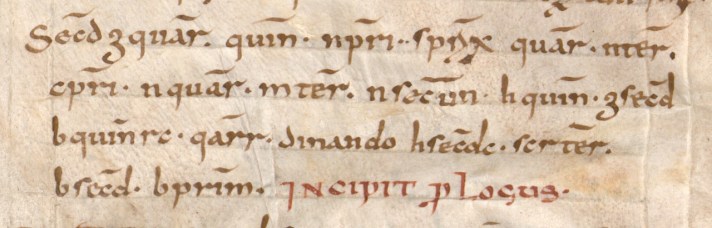 Secd̄ ȝ quar̄. quin̄. n pr̄i. sp̄x quar̄. nter̄.
cpr̄i. n quar̄. mter̄. n secūn. h quin̄. ȝ secd̄
b quin̄rc. qar̄r. dinando h secd̄c. scr ter̄.
b secd̄. b prim̄. INCIPIT ꝓLOGUS.